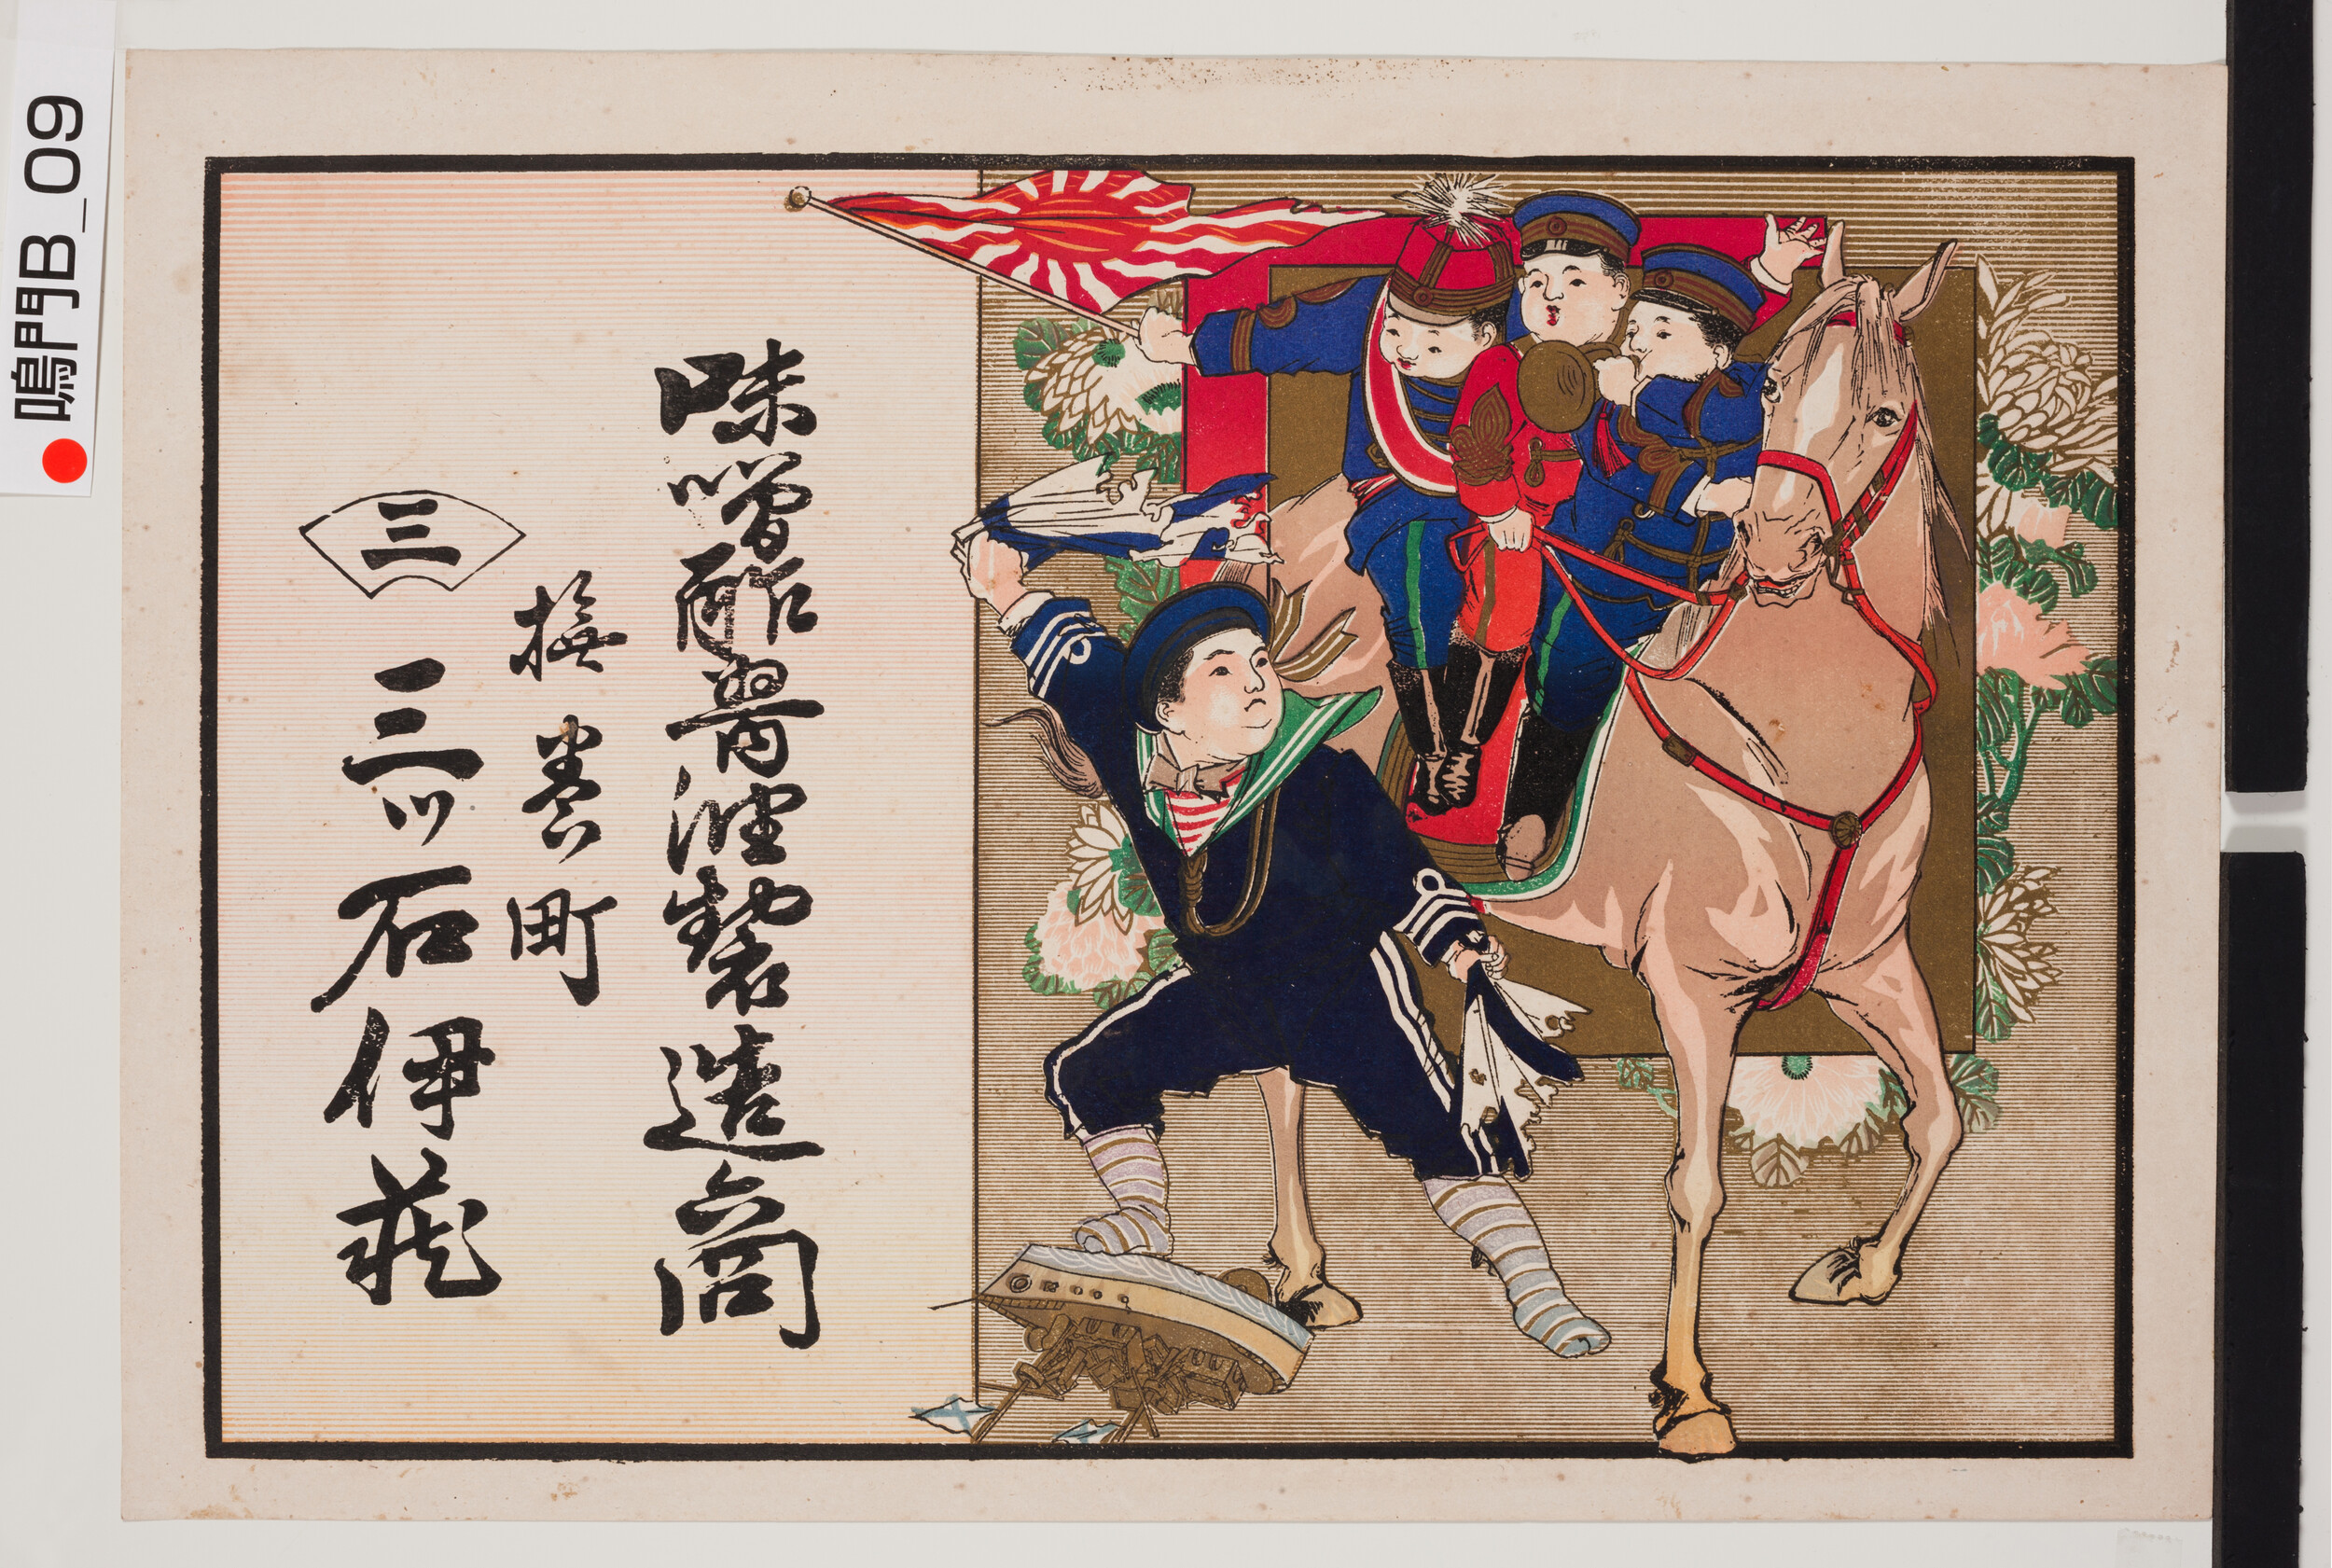 鳴門B_09
味噌酢醤油製造商
撫養町
三
三ツ石伊蔵